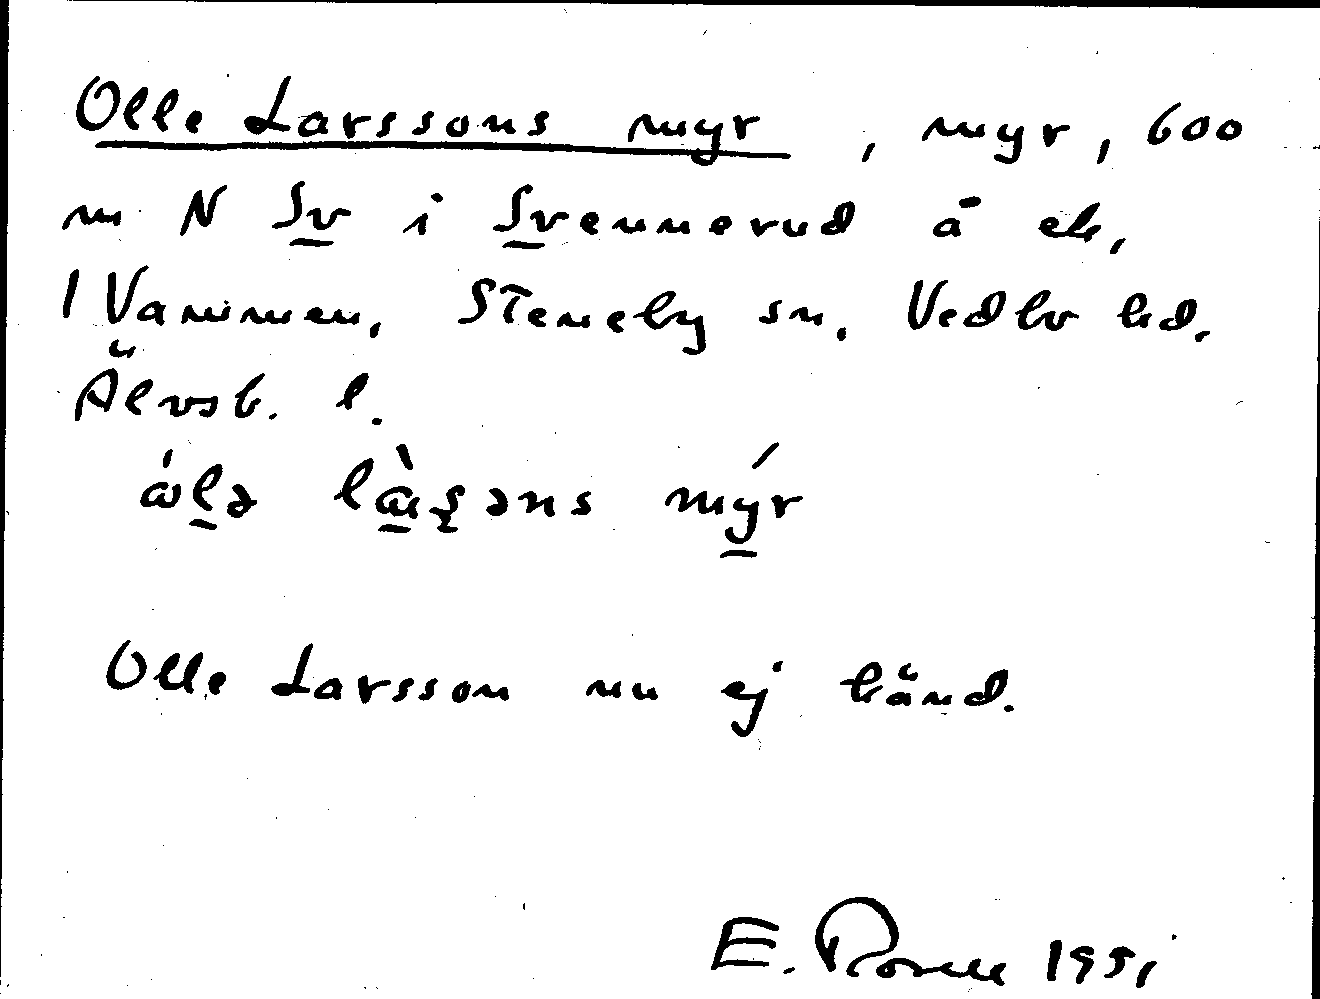 Olle Larssons myr, myr, 600
m N Sv i Svennerud å ek,
1 Vammen, Steneby sn. Vedbo hd.
Älvsb. l.
lɑ̀ȿəns mýr
Olle Larsson nu ej känd.
E. 1951